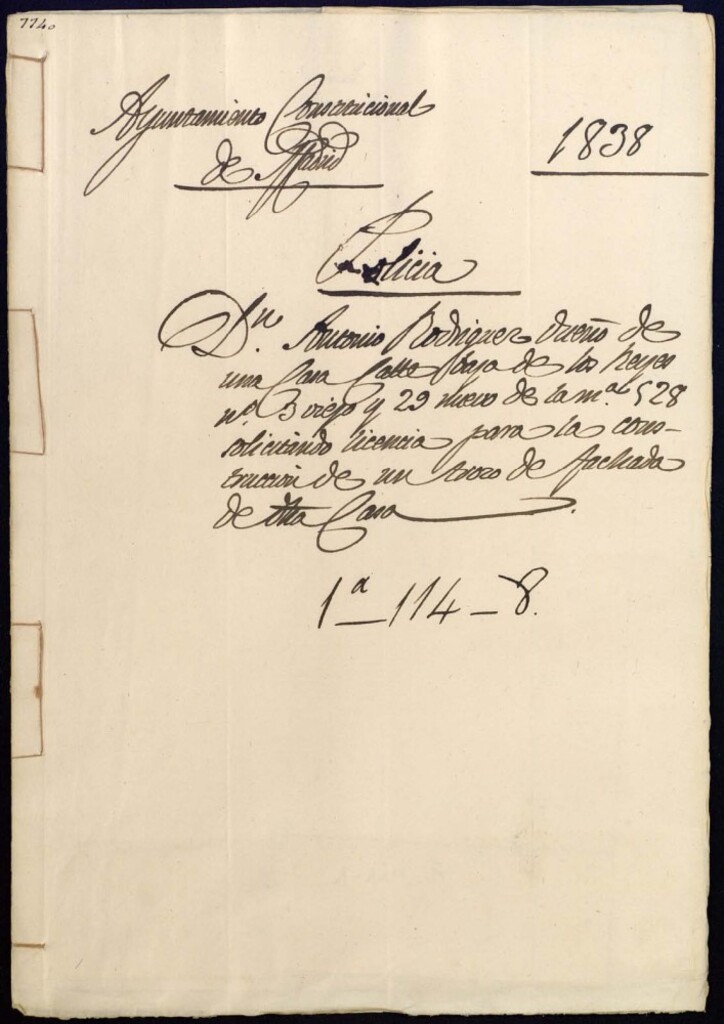 7740
Ayuntamiento Constitucional
de Madrid
1838
Policia
Dn. Antonio Rodriguez dueño de
una Casa Calle baja de los Reyes
nº 3 viejo y 29 nuevo de la mª 528
solicitando licencia para la cons-
truccion de un trozo de fachada
de dha Casa.
1ª-114-8.